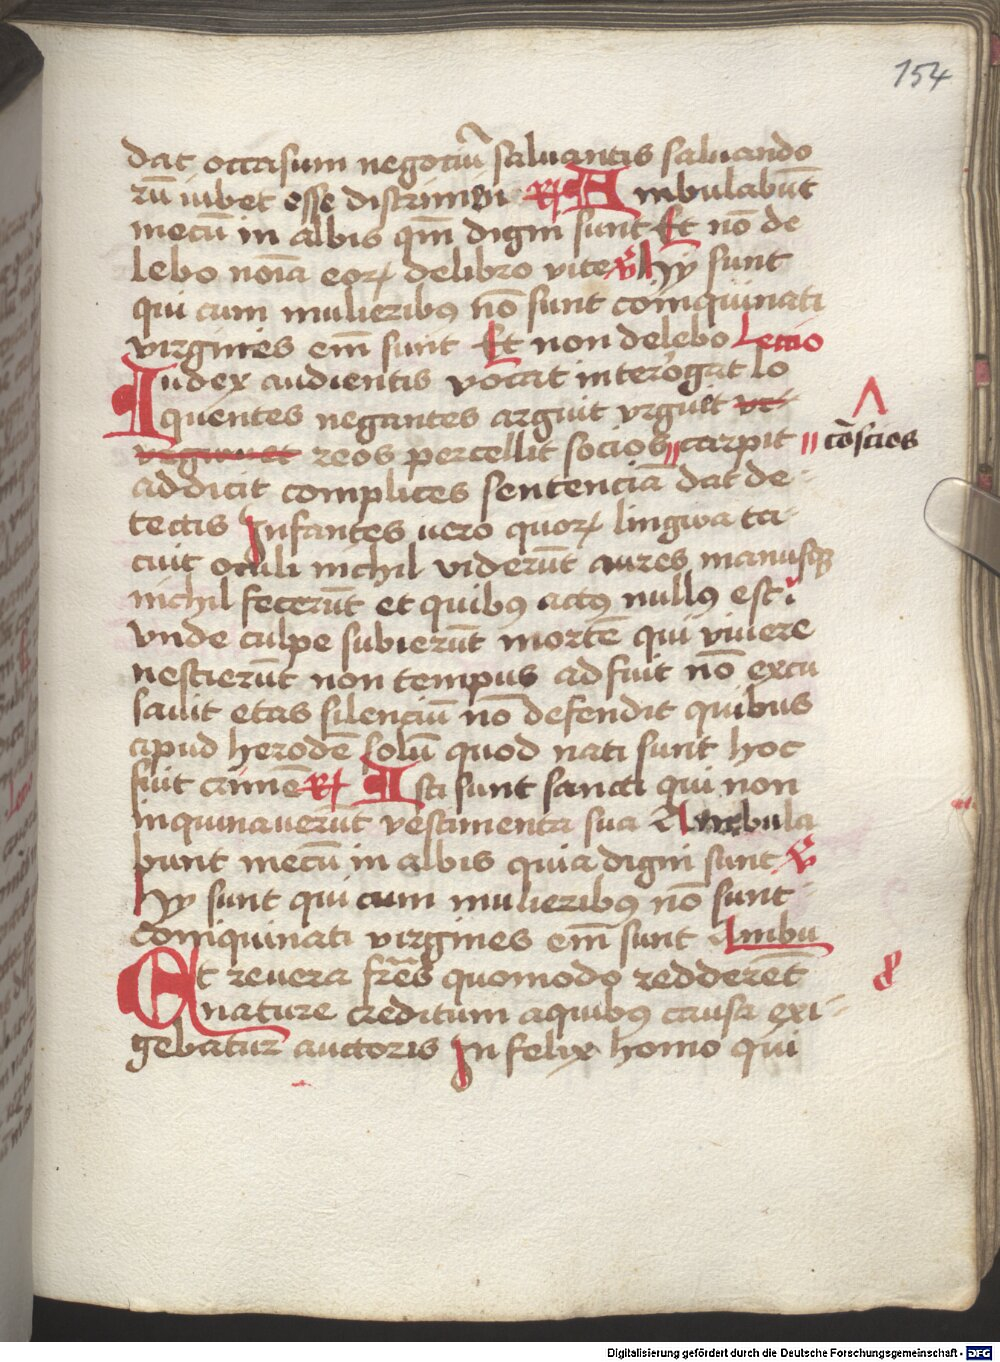 154
dat occasum negociū saluantis saluando
rū iubet esse discrimini R Ambulabūt
mecū in albis qm̄ digni sunt Et nō de
lebo noīa eoꝝ de libro vite V Hÿ sunt
qui cum mulieribꝫ nō sunt coinquinati
virgines em̄ sunt Et non delebo Lectio
Iudex audientis vocat interogat lo
quentes negantes arguit vrguet
reos percellit socios carpit cōscios
addicit complices sentenciā dat de
tectis Infantes uero quoꝝ lingwa ta
cuit oculi nichil viderūt aures manusqꝫ
nichil fecerūt et quibꝫ actꝫ nullꝫ est
vnde culpe subierūt mortē qui viuere
nescierūt non tempus adfuit nō excu
sauit etas silenciū nō defendit quibus
apud herodē solū quod nati sunt hoc
fuit crimē R Isti sunt sancti qui non
inquinauerūt vestimenta sua Ambula
bunt mecū in albis quia digni sunt V
Hÿ sunt qui cum mulieribꝫ nō sunt
coinquinati virgines em̄ sunt Ambu
Et reuera fr̄es quomodo redderēt
nature creditum aquibꝫ causa exi
gebatur auctoris In felix homo qui
Digitalisierung gefördert durch die Deutsche Forschungsgemeinschaft - DFG